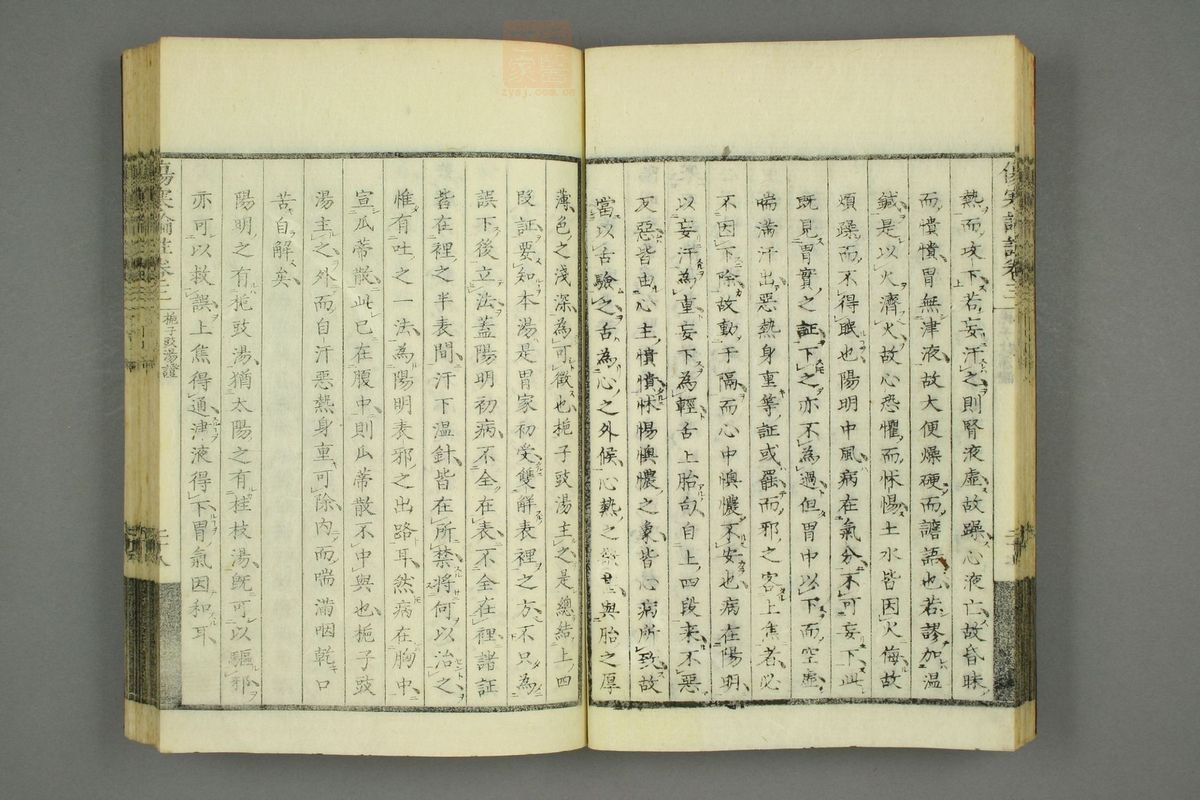 熱而攻下若妄汗之則腎液虛故躁心液亡故昏昧
而憒憒胃無津液故大便燥硬而譫語也若謬加温
鍼是以火濟火故心恐懼而怵惕土水皆因火侮故
煩躁而不得眠也陽明中風病在氣分不可妄下此
既見胃實之証下之亦不為過但胃中以下而空虛
喘滿汗出惡熱身重等証或罷而邪之客上焦者必
不因下除故動于隔而心中懊憹不安也病在陽明
以妄汗為重妄下為輕舌上胎句自上四段来不惡
反惡皆由心主憒憒怵惕懊憹之象皆心病所致故
當以舌驗之舌為心之外候心熱之微甚與胎之厚
薄色之淺深為可徵也梔子豉湯主之是總結上四
段証要知本湯是胃家初受雙解表裡之方不只為
誤下後立法蓋陽明初病不全在表不全在裡諸証
皆在裡之半表間汗下温針皆在所禁將何以治之
惟有吐之一法為陽明表邪之出路耳然病在胸中
宣瓜蒂散此已在腹中則瓜蒂散不中與也梔子豉
湯主之外而自汗惡熱身重可除內而喘滿咽乾口
苦自解矣
陽明之有梔豉湯猶太陽之有桂枝湯既可以驅邪
亦可以救誤上焦得通津液得下胃氣因和耳
梔子豉湯證
zysj.com.cn